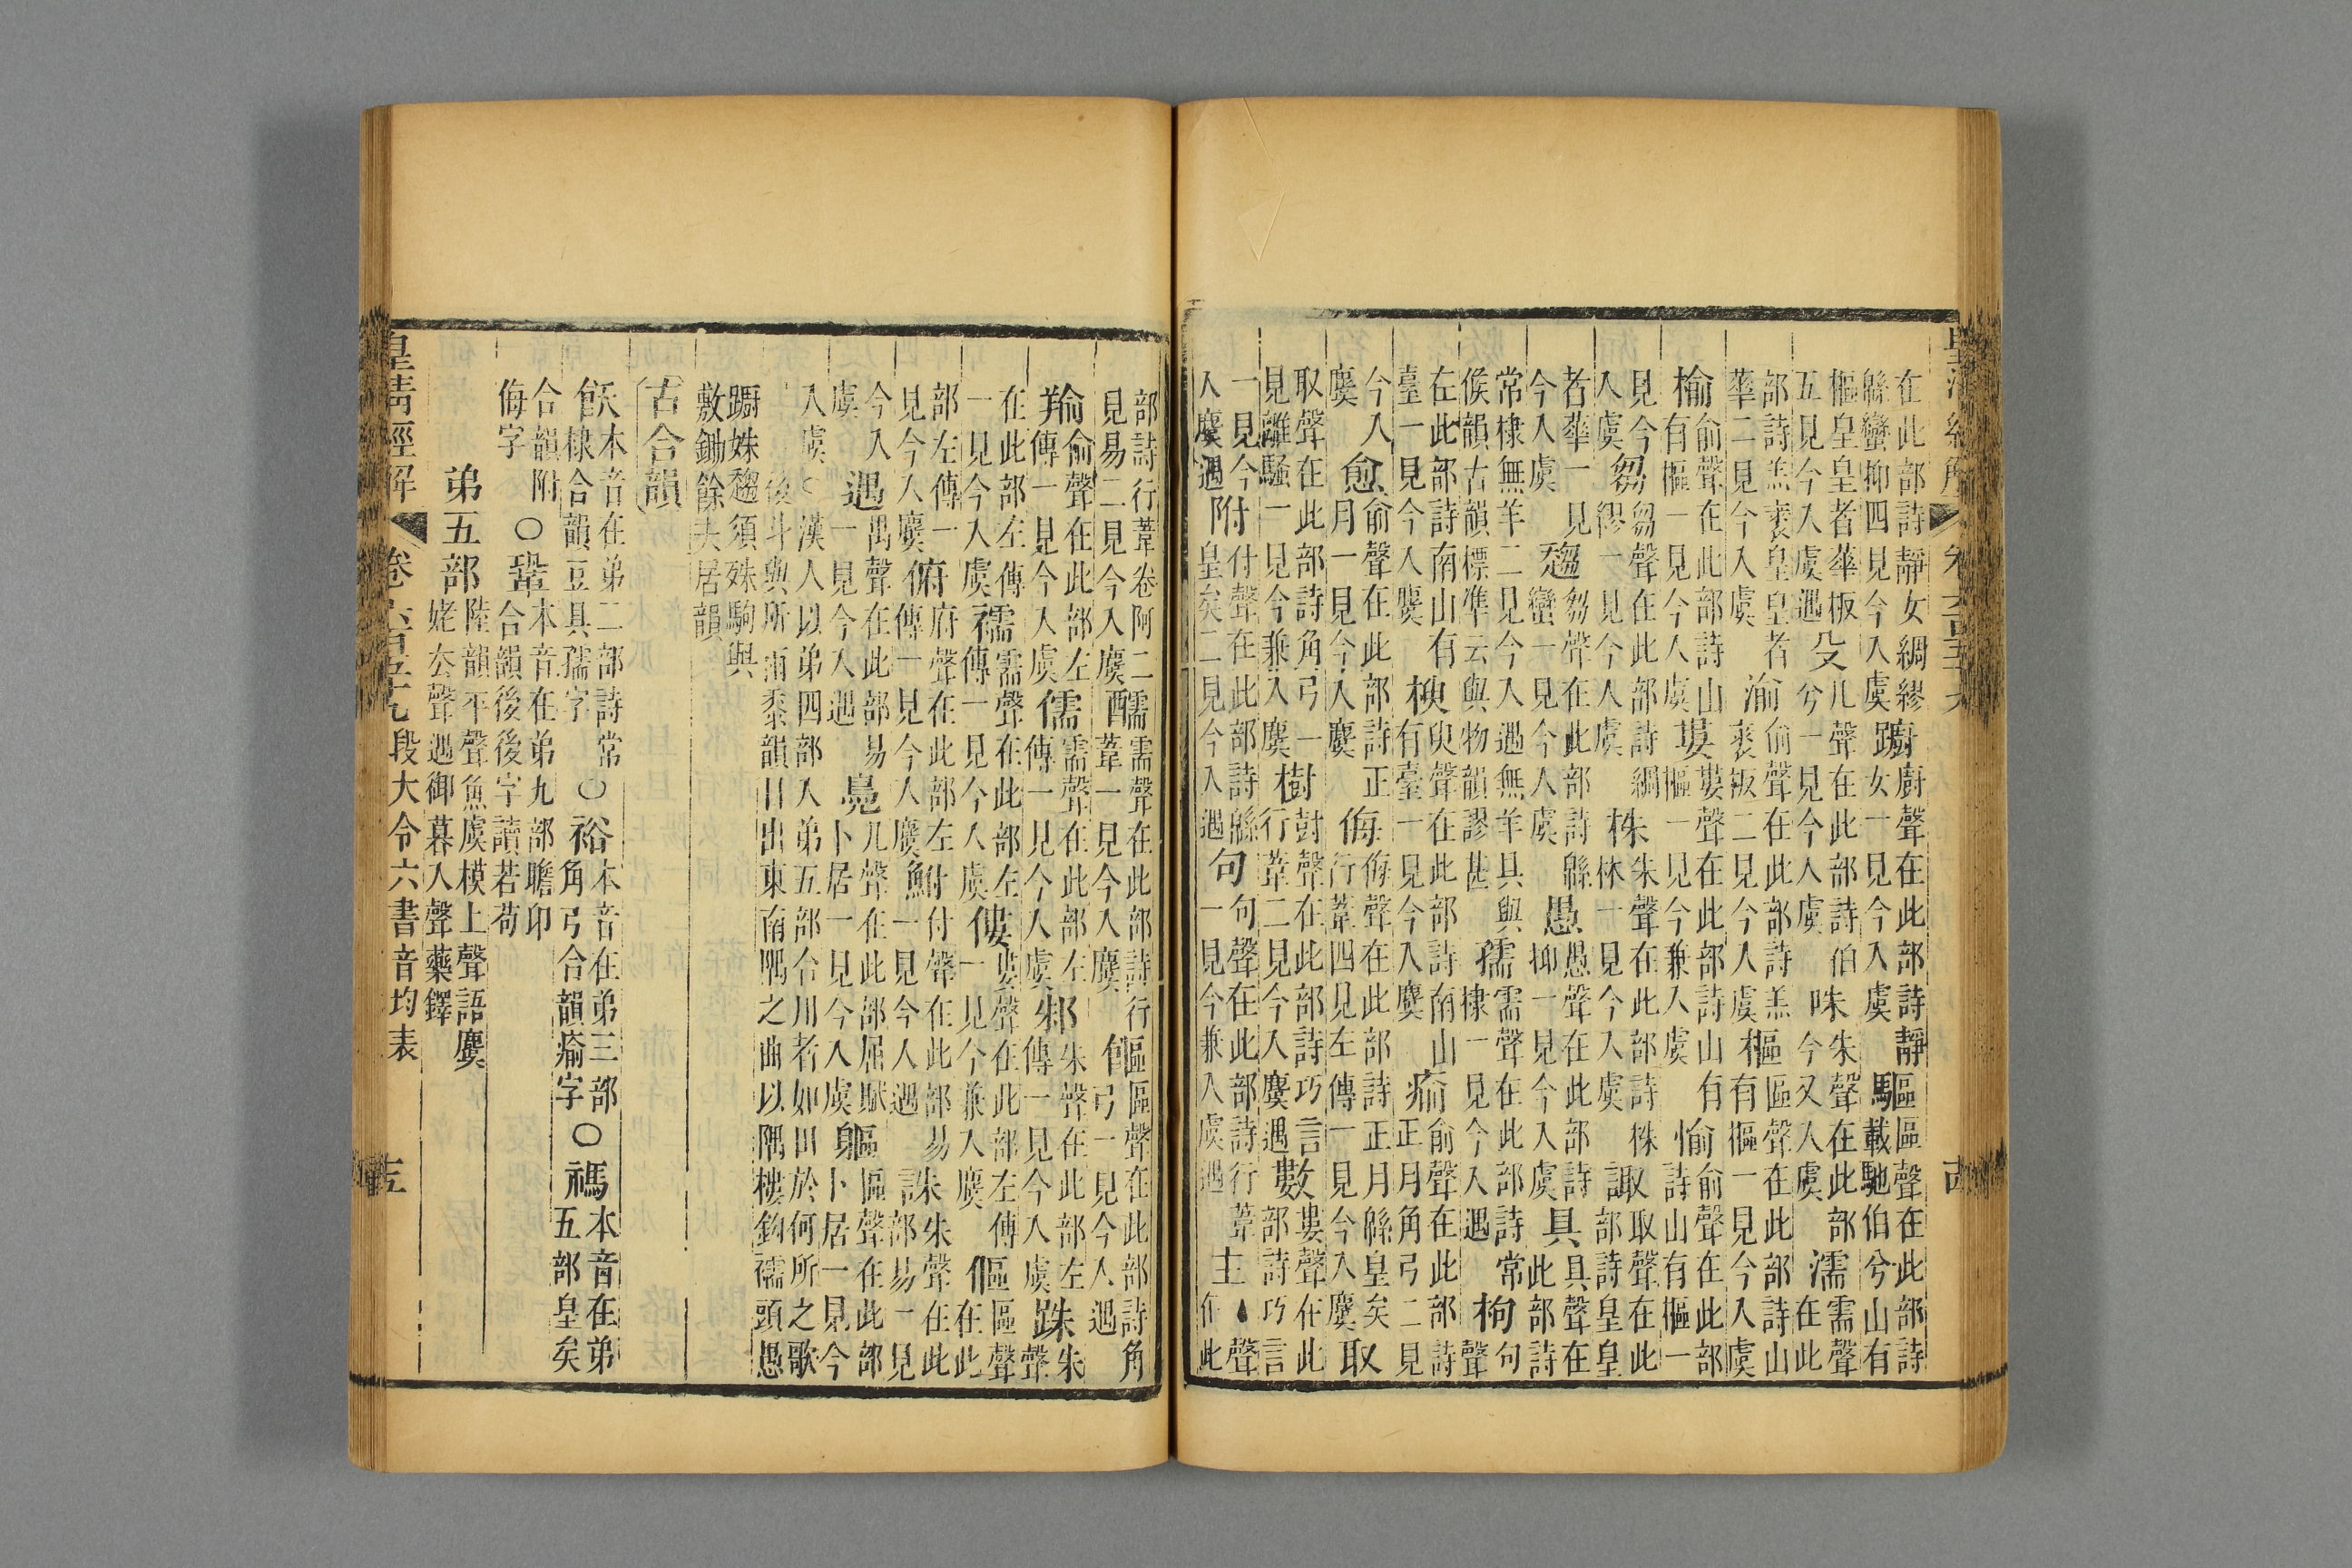 在此部詩靜女綢繆
緜蠻抑四見今入虞
躕廚聲在此部詩靜
女一見今入虞
驅區聲在此部詩
載馳伯兮山有
樞皇皇者華板
五見今入虞遇
殳几聲在此部詩伯
兮一見今入虞
咮朱聲在此部
今又入虞
濡需聲
在此
部詩羔裘皇皇者
華二見今入虞
渝俞聲在此部詩羔
裘板二見今入虞
樞區聲在此部詩山
有樞一見今入虞
榆俞聲在此部詩山
有樞一見今入虞
婁婁聲在此部詩山有
樞一見今兼入虞
愉俞聲在此部
詩山有樞一
見今
入虞
芻芻聲在此部詩綢
繆一見今入虞
株朱聲在此部詩株
林一見今入虞
諏取聲在此
部詩皇皇
者華一見
今入虞
趨芻聲在此部詩緜
蠻一見今入虞
愚愚聲在此部詩
抑一見今入虞
具具聲在
此部詩
常棣無羊二見今入遇無羊具與
侯韻古韻標準云與物韻謬甚
孺需聲在此部詩常
棣一見今入遇
枸句
聲
在此部詩南山有
臺一見今入麌
楰臾聲在此部詩南山
有臺一見今入麌
瘉俞聲在此部詩
正月角弓二見
今入
麌
愈俞聲在此部詩正
月一見今入麌
侮侮聲在此部詩正月緜皇矣
行葦四見左傳一見今入麌
取
取聲在此部詩角弓一
見離騷一見今兼入麌
樹尌聲在此部詩巧言
行葦二見今入麌遇
數婁聲在此
部詩巧言
一見今
入麌遇
附付聲在此部詩緜
皇矣二見今入遇
句句聲在此部詩行葦
一見今兼入虞遇
主聲
在此
部詩行葦卷阿二
見易二見今入麌
醹需聲在此部詩行
葦一見今入麌
傴區聲在此部詩角
弓一見今入遇
羭俞聲在此部左
傳一見今入虞
儒需聲在此部左
傳一見今入虞
邾朱聲在此部左
傳一見今入虞
跦朱
聲
在此部左傳
一見今入虞
襦需聲在此部左
傳一見今入虞
僂婁聲在此部左傳
一見今兼入麌
傴區聲
在此
部左傳一
見今入麌
俯府聲在此部左
傳一見今入麌
鮒付聲在此部易
一見今入遇
誅朱聲在此
部易一見
今入
虞
遇禺聲在此部易
一見今入遇
鳧几聲在此部屈賦
卜居一見今入虞
軀區聲在此部
卜居一見今
入虞○漢人以弟四部入弟五部合用者如田於何所之歌
後斗與所雨黍韻日出東南隅之曲以隅樓鉤襦頭愚
躕姝趨須殊駒與
敷鋤餘夫居韻
古合韻
飫本音在弟二部詩常
棣合韻豆具孺字
○裕本音在弟三部
角弓合韻瘉字
○禡本音在弟
五部皇矣
合韻附
侮字
○鞏本音在弟九部瞻卬
合韻後後字讀若苟
弟五部
陸韻平聲魚虞模上聲語麌
姥去聲遇御暮入聲藥鐸
皇清經解
卷六百五十七段大令六書音均表